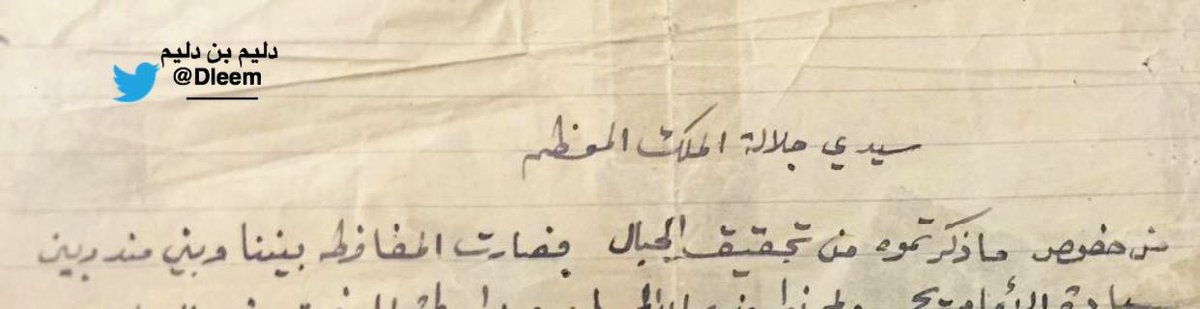 دليم بن دليم
@Dleem
سيدي جلالة الملك المعظم
من خصوص ما ذكرتموه من تحقيق الجبال فصارت المفاوضه بيننا وبين مندوبين